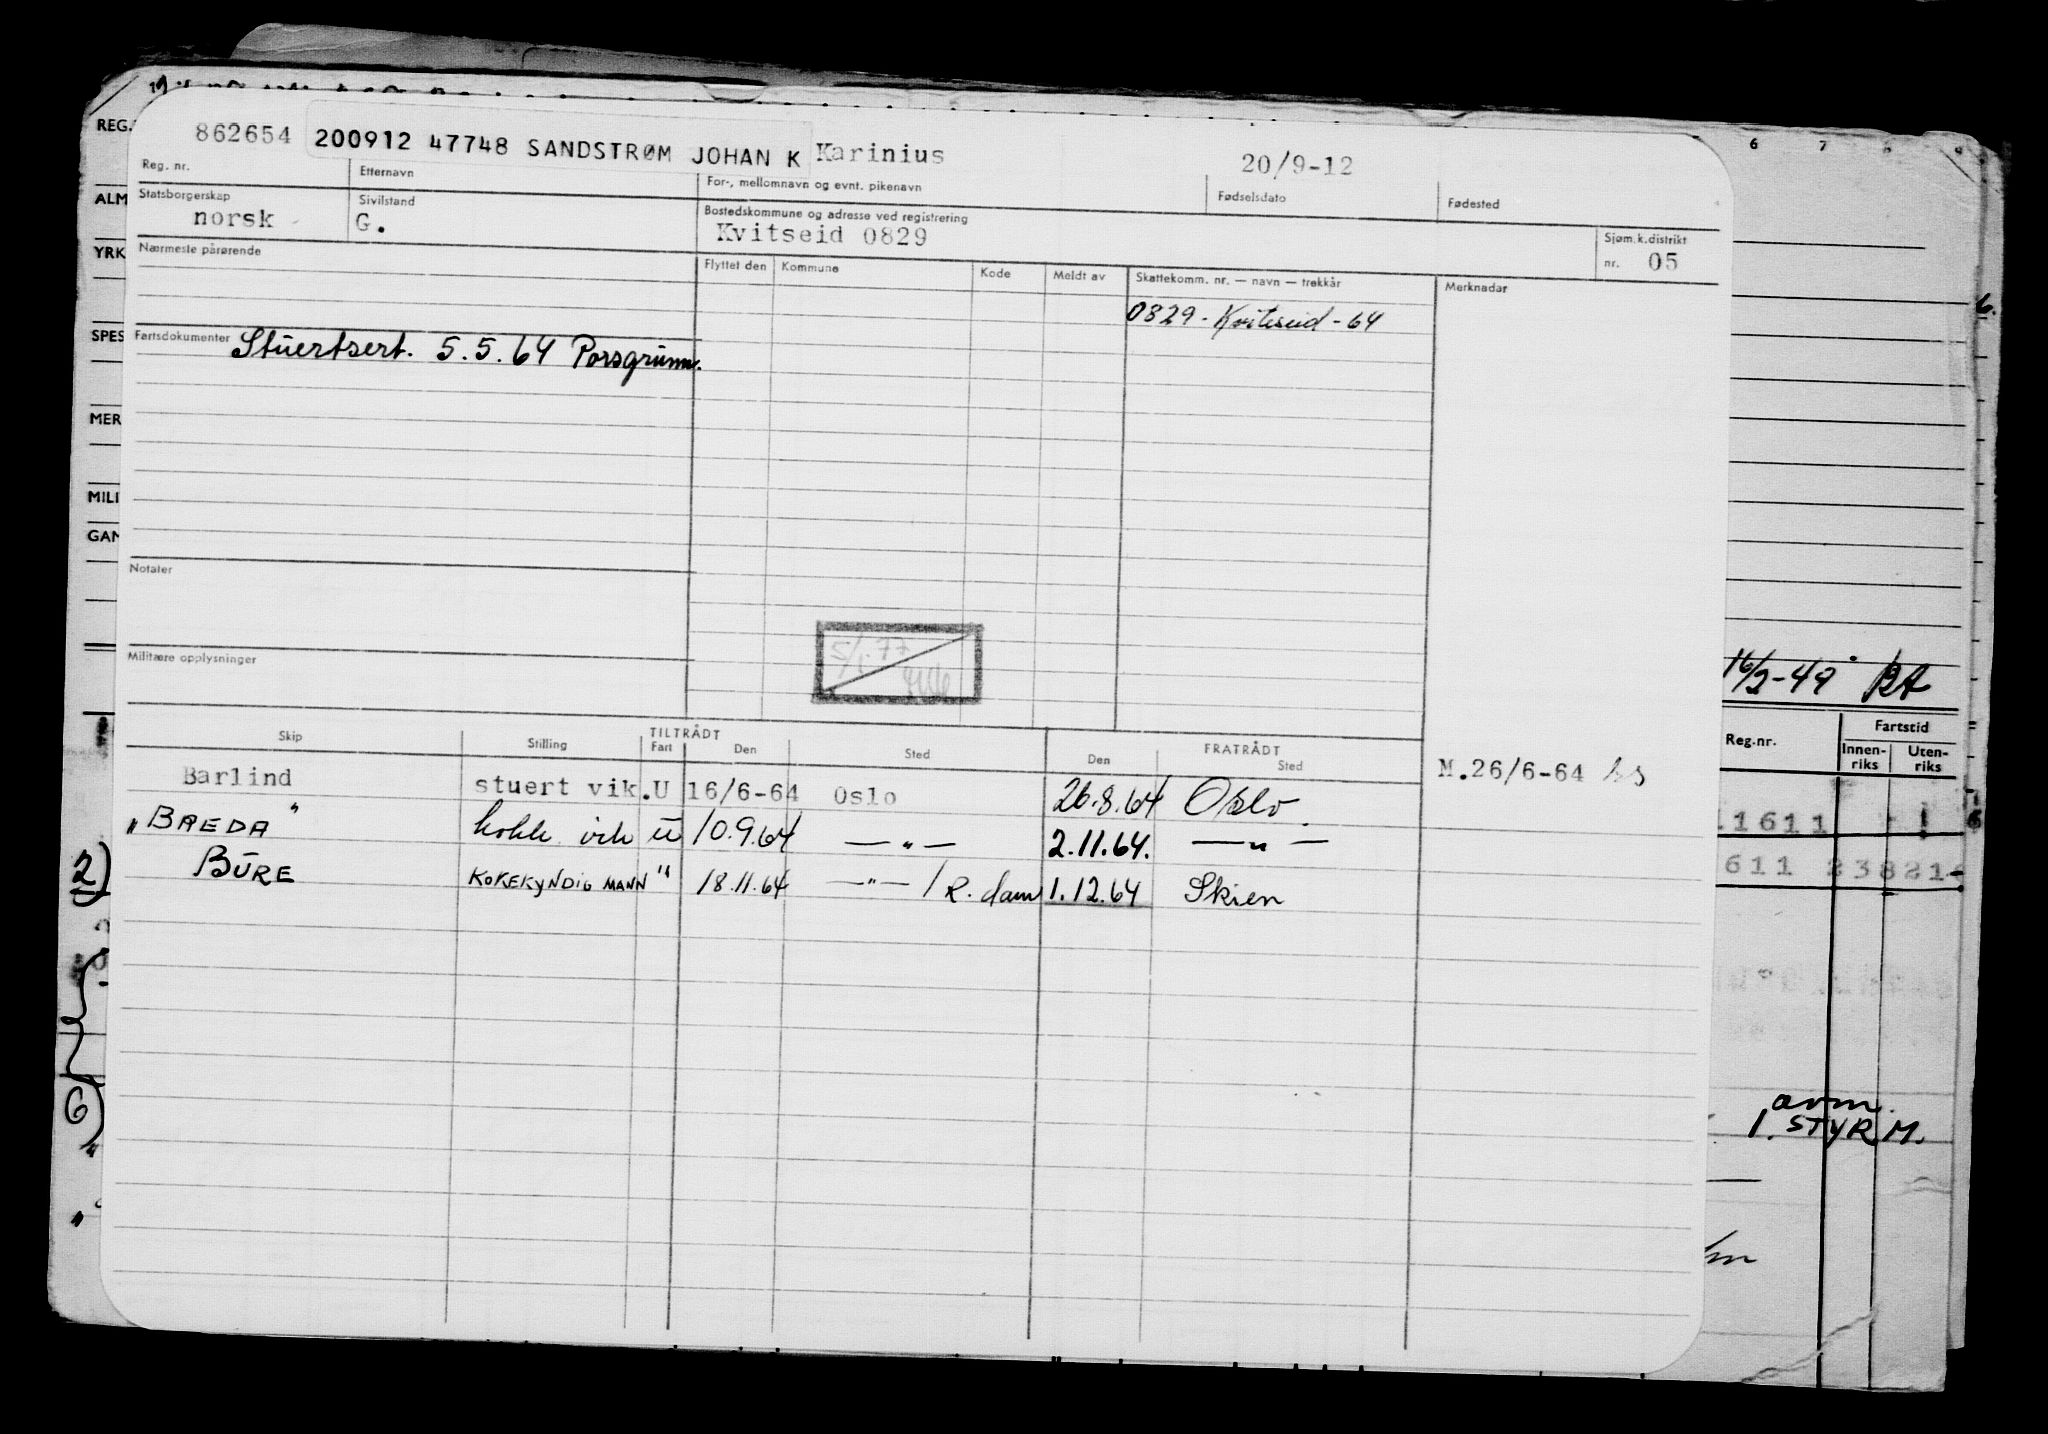 862654 200912 47748 SANDSTRØM JOHAN K Karinius 20/9-12
Reg. nr. Etternavn For-, mellomnavn og evnt. pikenavn Fødselsdato Fødested
Statsborgerskap Sivilstand Bostedskommune og adresse ved registrering Sjøm.k.distrikt
norsk G. Kvitseid 0829 nr. 05
Nærmeste pårørende Flyttet den Kommune Kode Meldt av Skattekomm. nr. — navn — trekkår Merknader
0829 - Kviteseid - 64
Fartsdokumenter Stuertsert. 5.5.64 Porsgrunn.
Notater
5/1 77
Militære opplysninger
TILTRÅDT FRATRÅDT
Skip Stilling Fart Den Sted Den Sted
Barlind stuert vik. U 16/6-64 Oslo 26.8.64 Oslo. M.26/6-64
"BREDA" kokk vik U 10.9.64 — " — 2.11.64. — " —
BURE KOKEKYNDIG MANN " 18.11.64 — " — / R. dam 1.12.64 Skien
REG.
ALM
YRK
SPES
MER
MILI
GAN
2)
6)
6 7 8 9
6.
16/2-49 BA
Reg.nr. Fartstid
Innen-riks Uten-riks
11611
611 23821
avm.
1. STYRM.